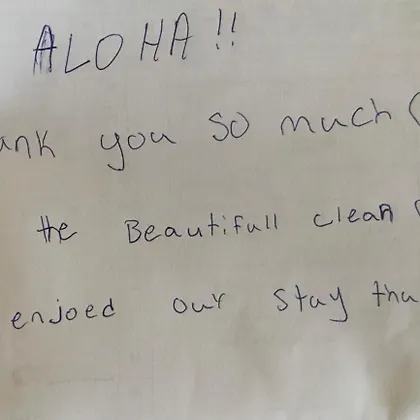 ALOHA!!
ank you so much (
the Beautifull clean
enjoed our stay tha